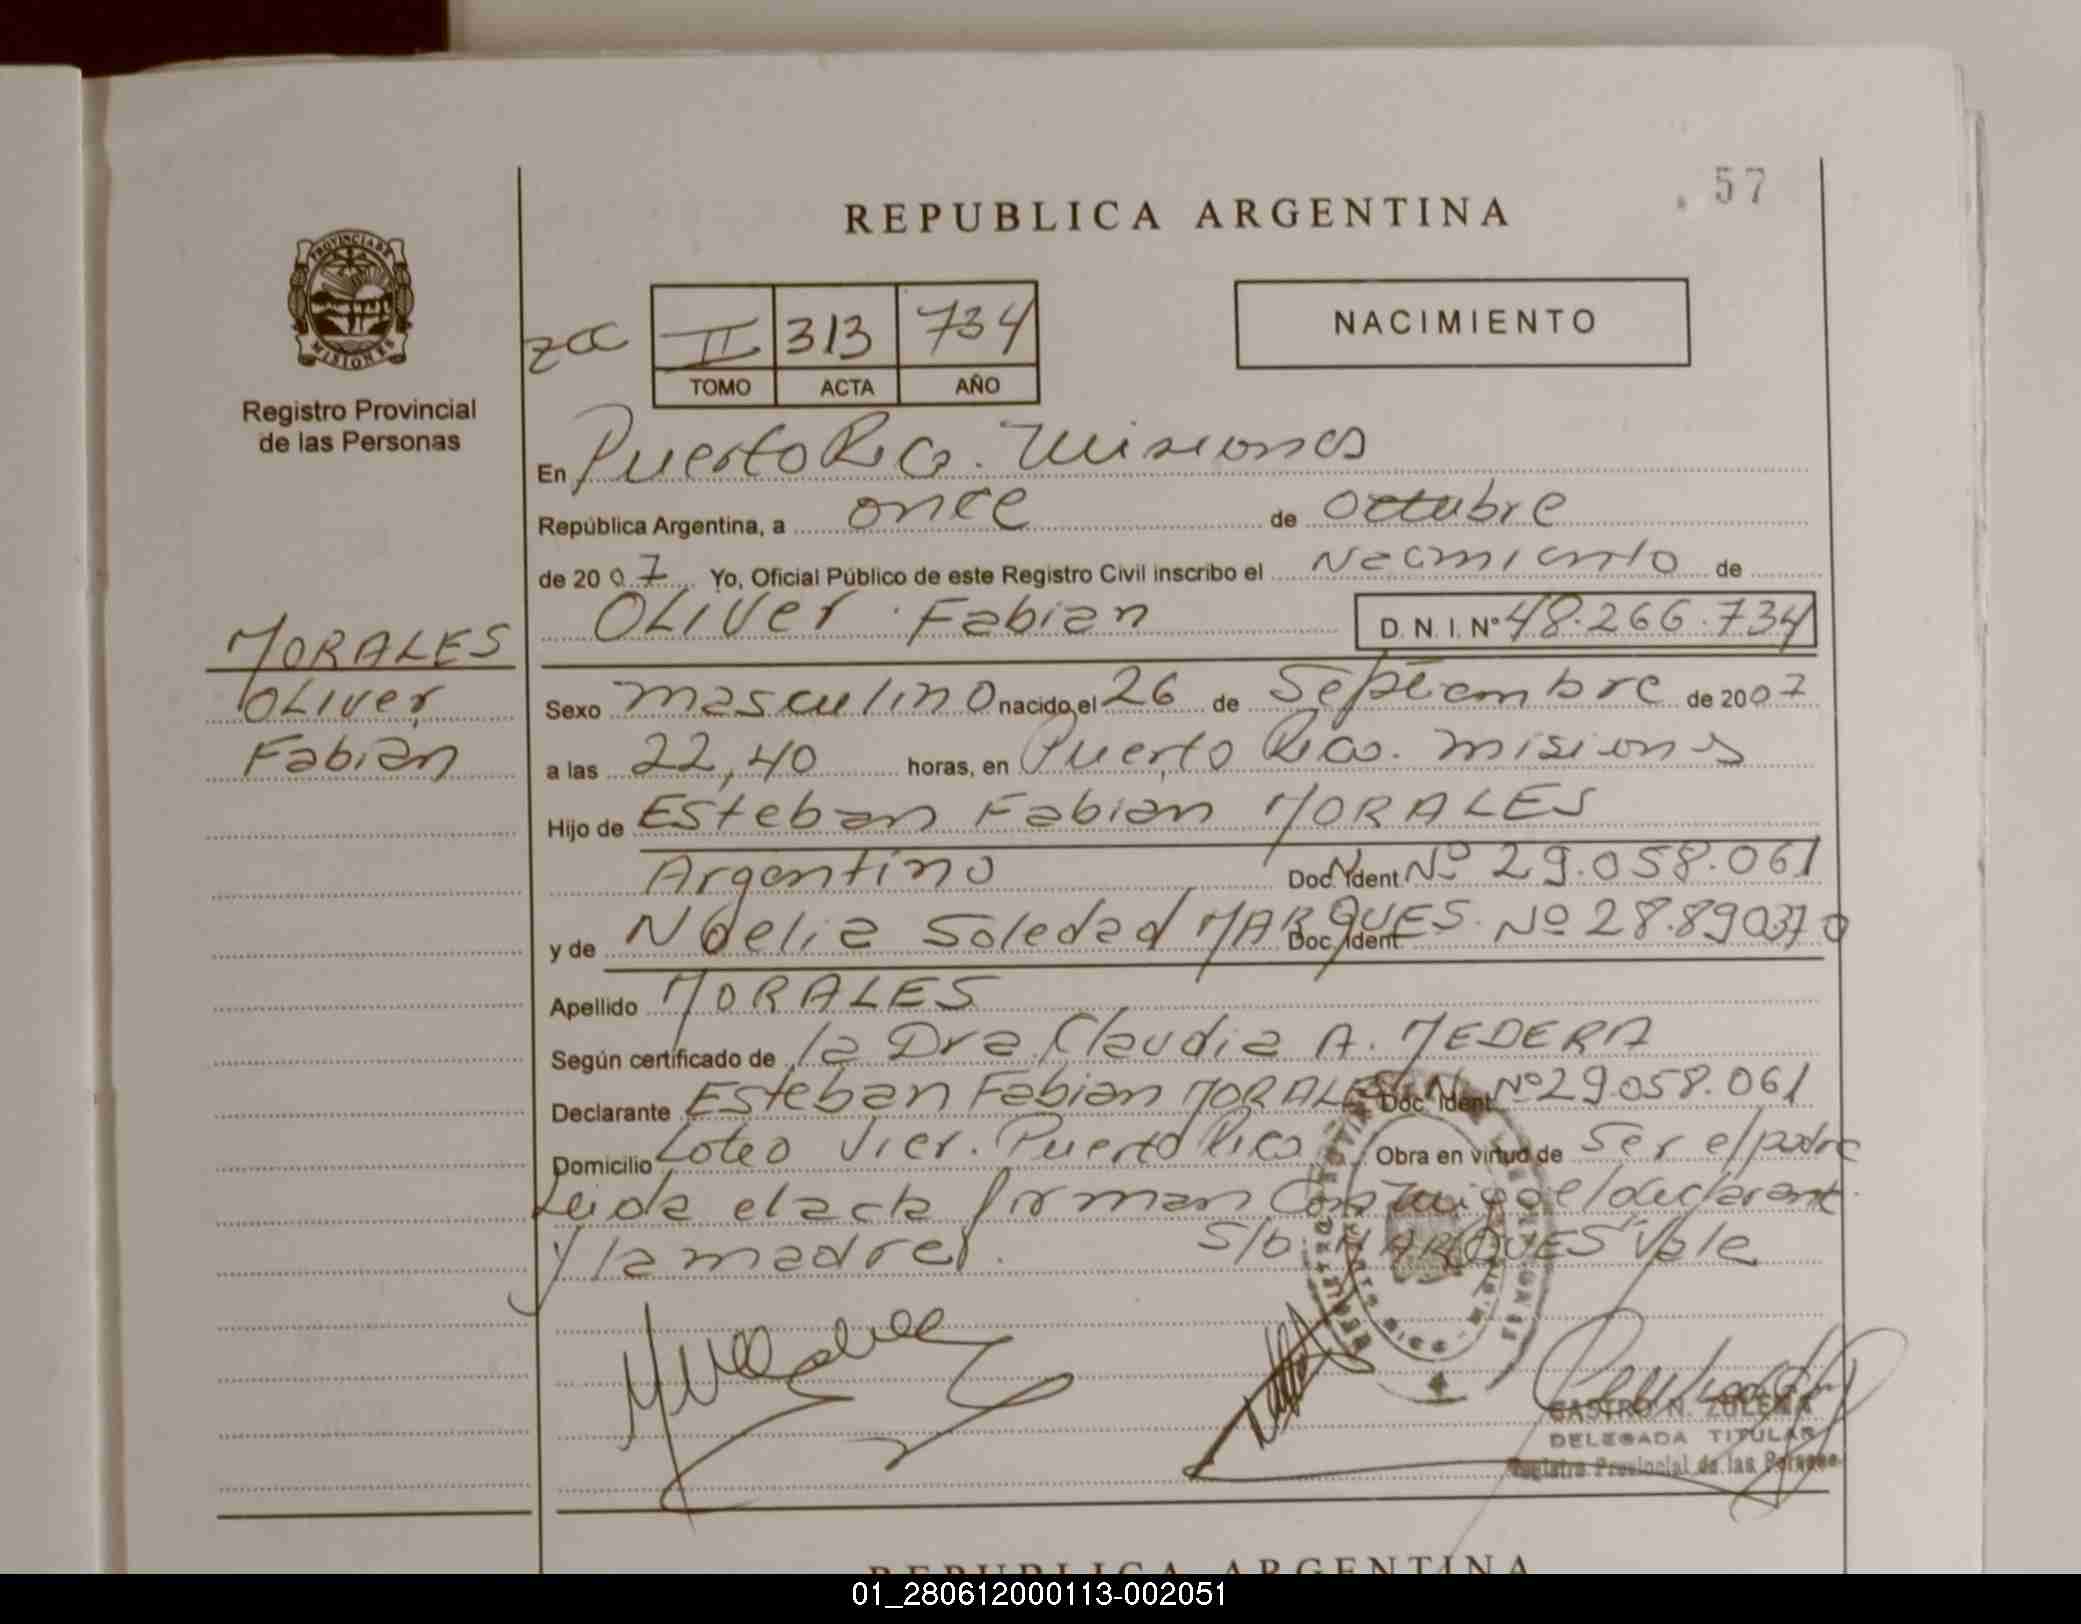 57
REPUBLICA ARGENTINA
PROVINCIA DE
MISIONES
Registro Provincial
de las Personas
II 313 734
TOMO ACTA AÑO
NACIMIENTO
En Puerto Rico. Misiones
República Argentina, a once de Octubre
de 2007 Yo, Oficial Público de este Registro Civil inscribo el Nacimiento de
OLIVer Fabian D. N. I. Nº 48.266.734
MORALES
OLIVer
Fabian
Sexo masculino nacido el 26 de Septiembre de 2007
a las 22,40 horas, en Puerto Rico. misiones
Hijo de Esteban Fabian MORALES
Argentino Doc. Ident. Nº 29.058.061
y de Noelia Soledad MARQUES. Doc. Ident. Nº 28.890370
Apellido MORALES
Según certificado de la Dra. Claudia A. MEDERA
Declarante Esteban Fabian MORALES Doc. Ident. Nº 29.058.061
Domicilio Loteo Vier. Puerto Rico Obra en virtud de Ser el padre
Leida el acta firman Conmigo el declarante
y la madre. S/b. MARQUES Vale
CASTRO N. ZULEMA
DELEGADA TITULAR
Registro Provincial de las Personas
REPUBLICA ARGENTINA
01_280612000113-002051